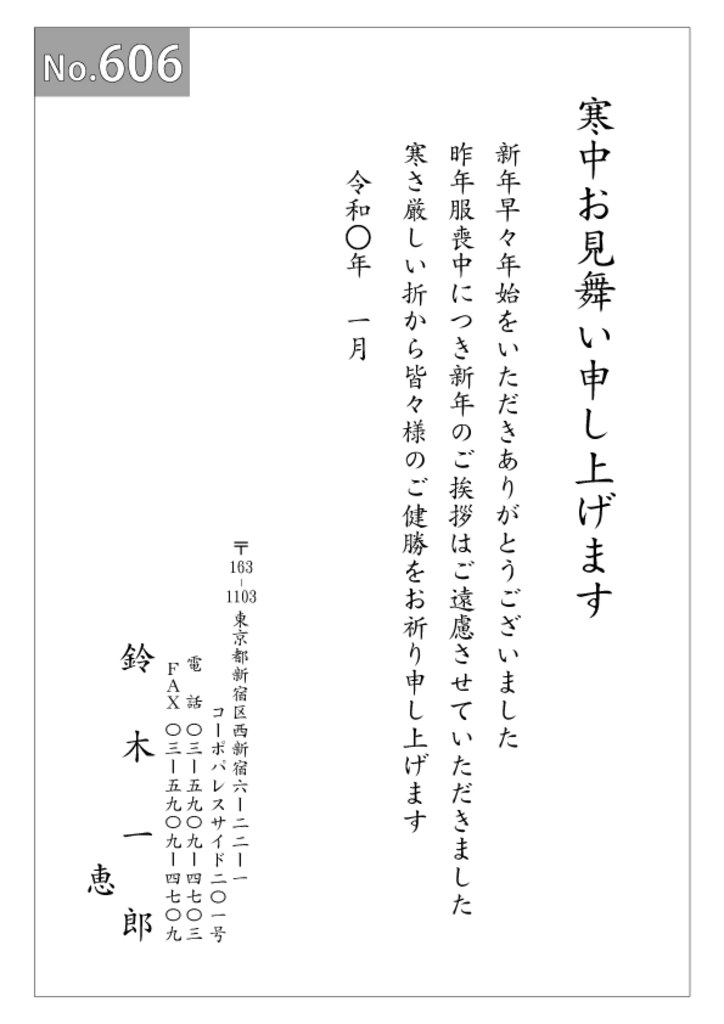 No.606
寒中お見舞い申し上げます
新年早々年始をいただきありがとうございました
昨年服喪中につき新年のご挨拶はご遠慮させていただきました
寒さ厳しい折から皆々様のご健勝をお祈り申し上げます
令和〇年　一月
〒163-1103 東京都新宿区西新宿六ー二二ー一
コーポパレスサイド二〇一号
電　話 〇三ー五九〇九ー四七〇三
FAX 〇三ー五九〇九ー四七〇九
鈴木一郎
恵